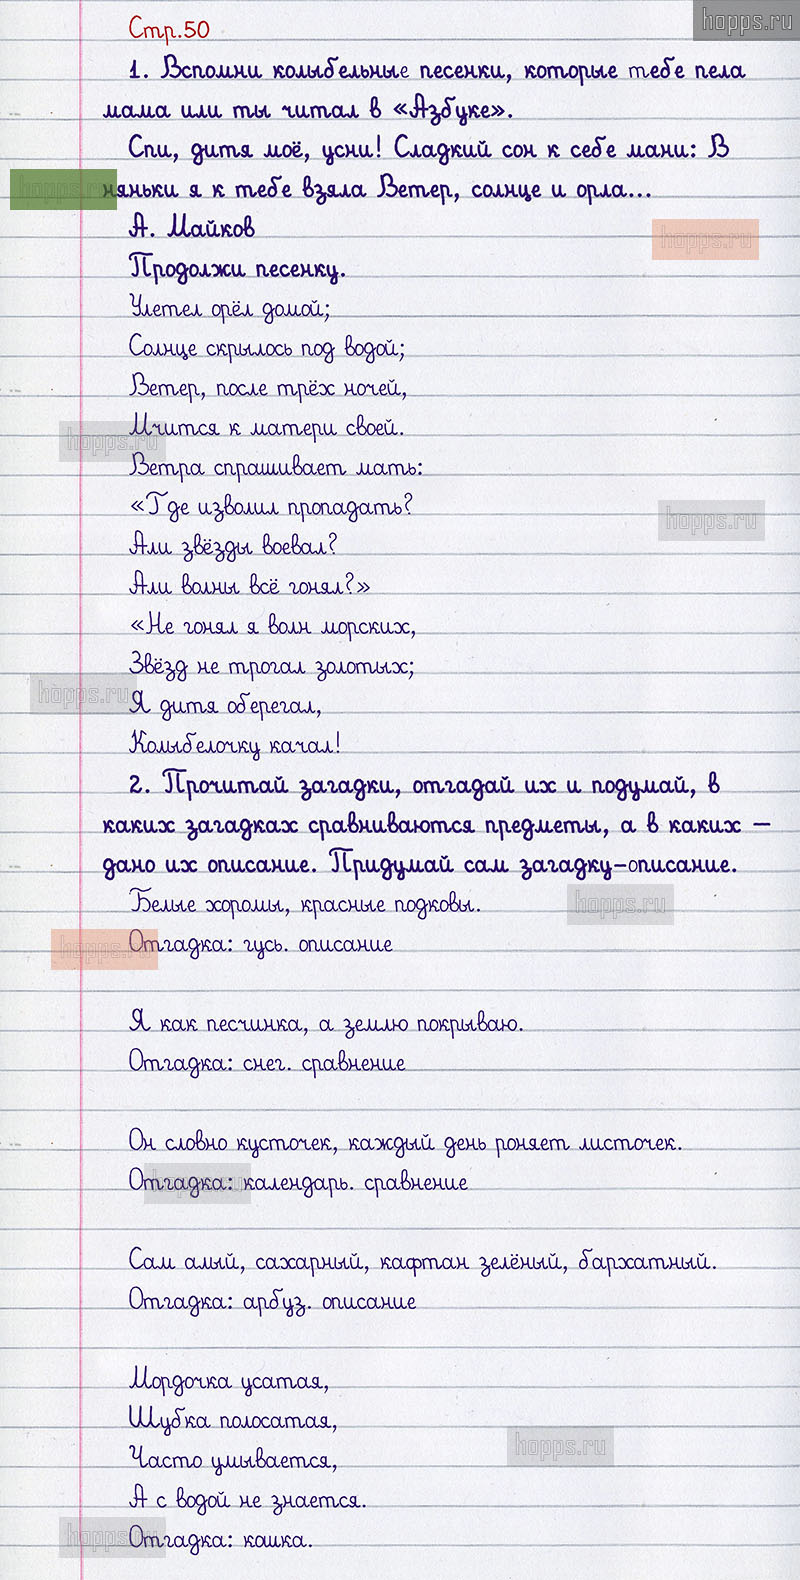 hopps.ru
Стр.50
1. Вспомни колыбельные песенки, которые тебе пела
мама или ты читал в «Азбуке».
Спи, дитя моё, усни! Сладкий сон к себе мани: В
няньки я к тебе взяла Ветер, солнце и орла...
hopps.ru
А. Майков
hopps.ru
Продолжи песенку.
Улетел орёл домой;
Солнце скрылось под водой;
Ветер, после трёх ночей,
Мчится к матери своей.
hopps.ru
Ветра спрашивает мать:
«Где изволил пропадать?
hopps.ru
Али звёзды воевал?
Али волны всё гонял?»
«Не гонял я волн морских,
Звёзд не трогал золотых;
Я дитя оберегал,
hopps.ru
Колыбелочку качал!
2. Прочитай загадки, отгадай их и подумай, в
каких загадках сравниваются предметы, а в каких –
дано их описание. Придумай сам загадку-описание.
Белые хоромы, красные подковы.
hopps.ru
Отгадка: гусь. описание
hopps.ru
Я как песчинка, а землю покрываю.
Отгадка: снег. сравнение
Он словно кусточек, каждый день роняет листочек.
Отгадка: календарь. сравнение
hopps.ru
Сам алый, сахарный, кафтан зелёный, бархатный.
Отгадка: арбуз. описание
Мордочка усатая,
Шубка полосатая,
Часто умывается,
hopps.ru
А с водой не знается.
Отгадка: кошка.
hopps.ru